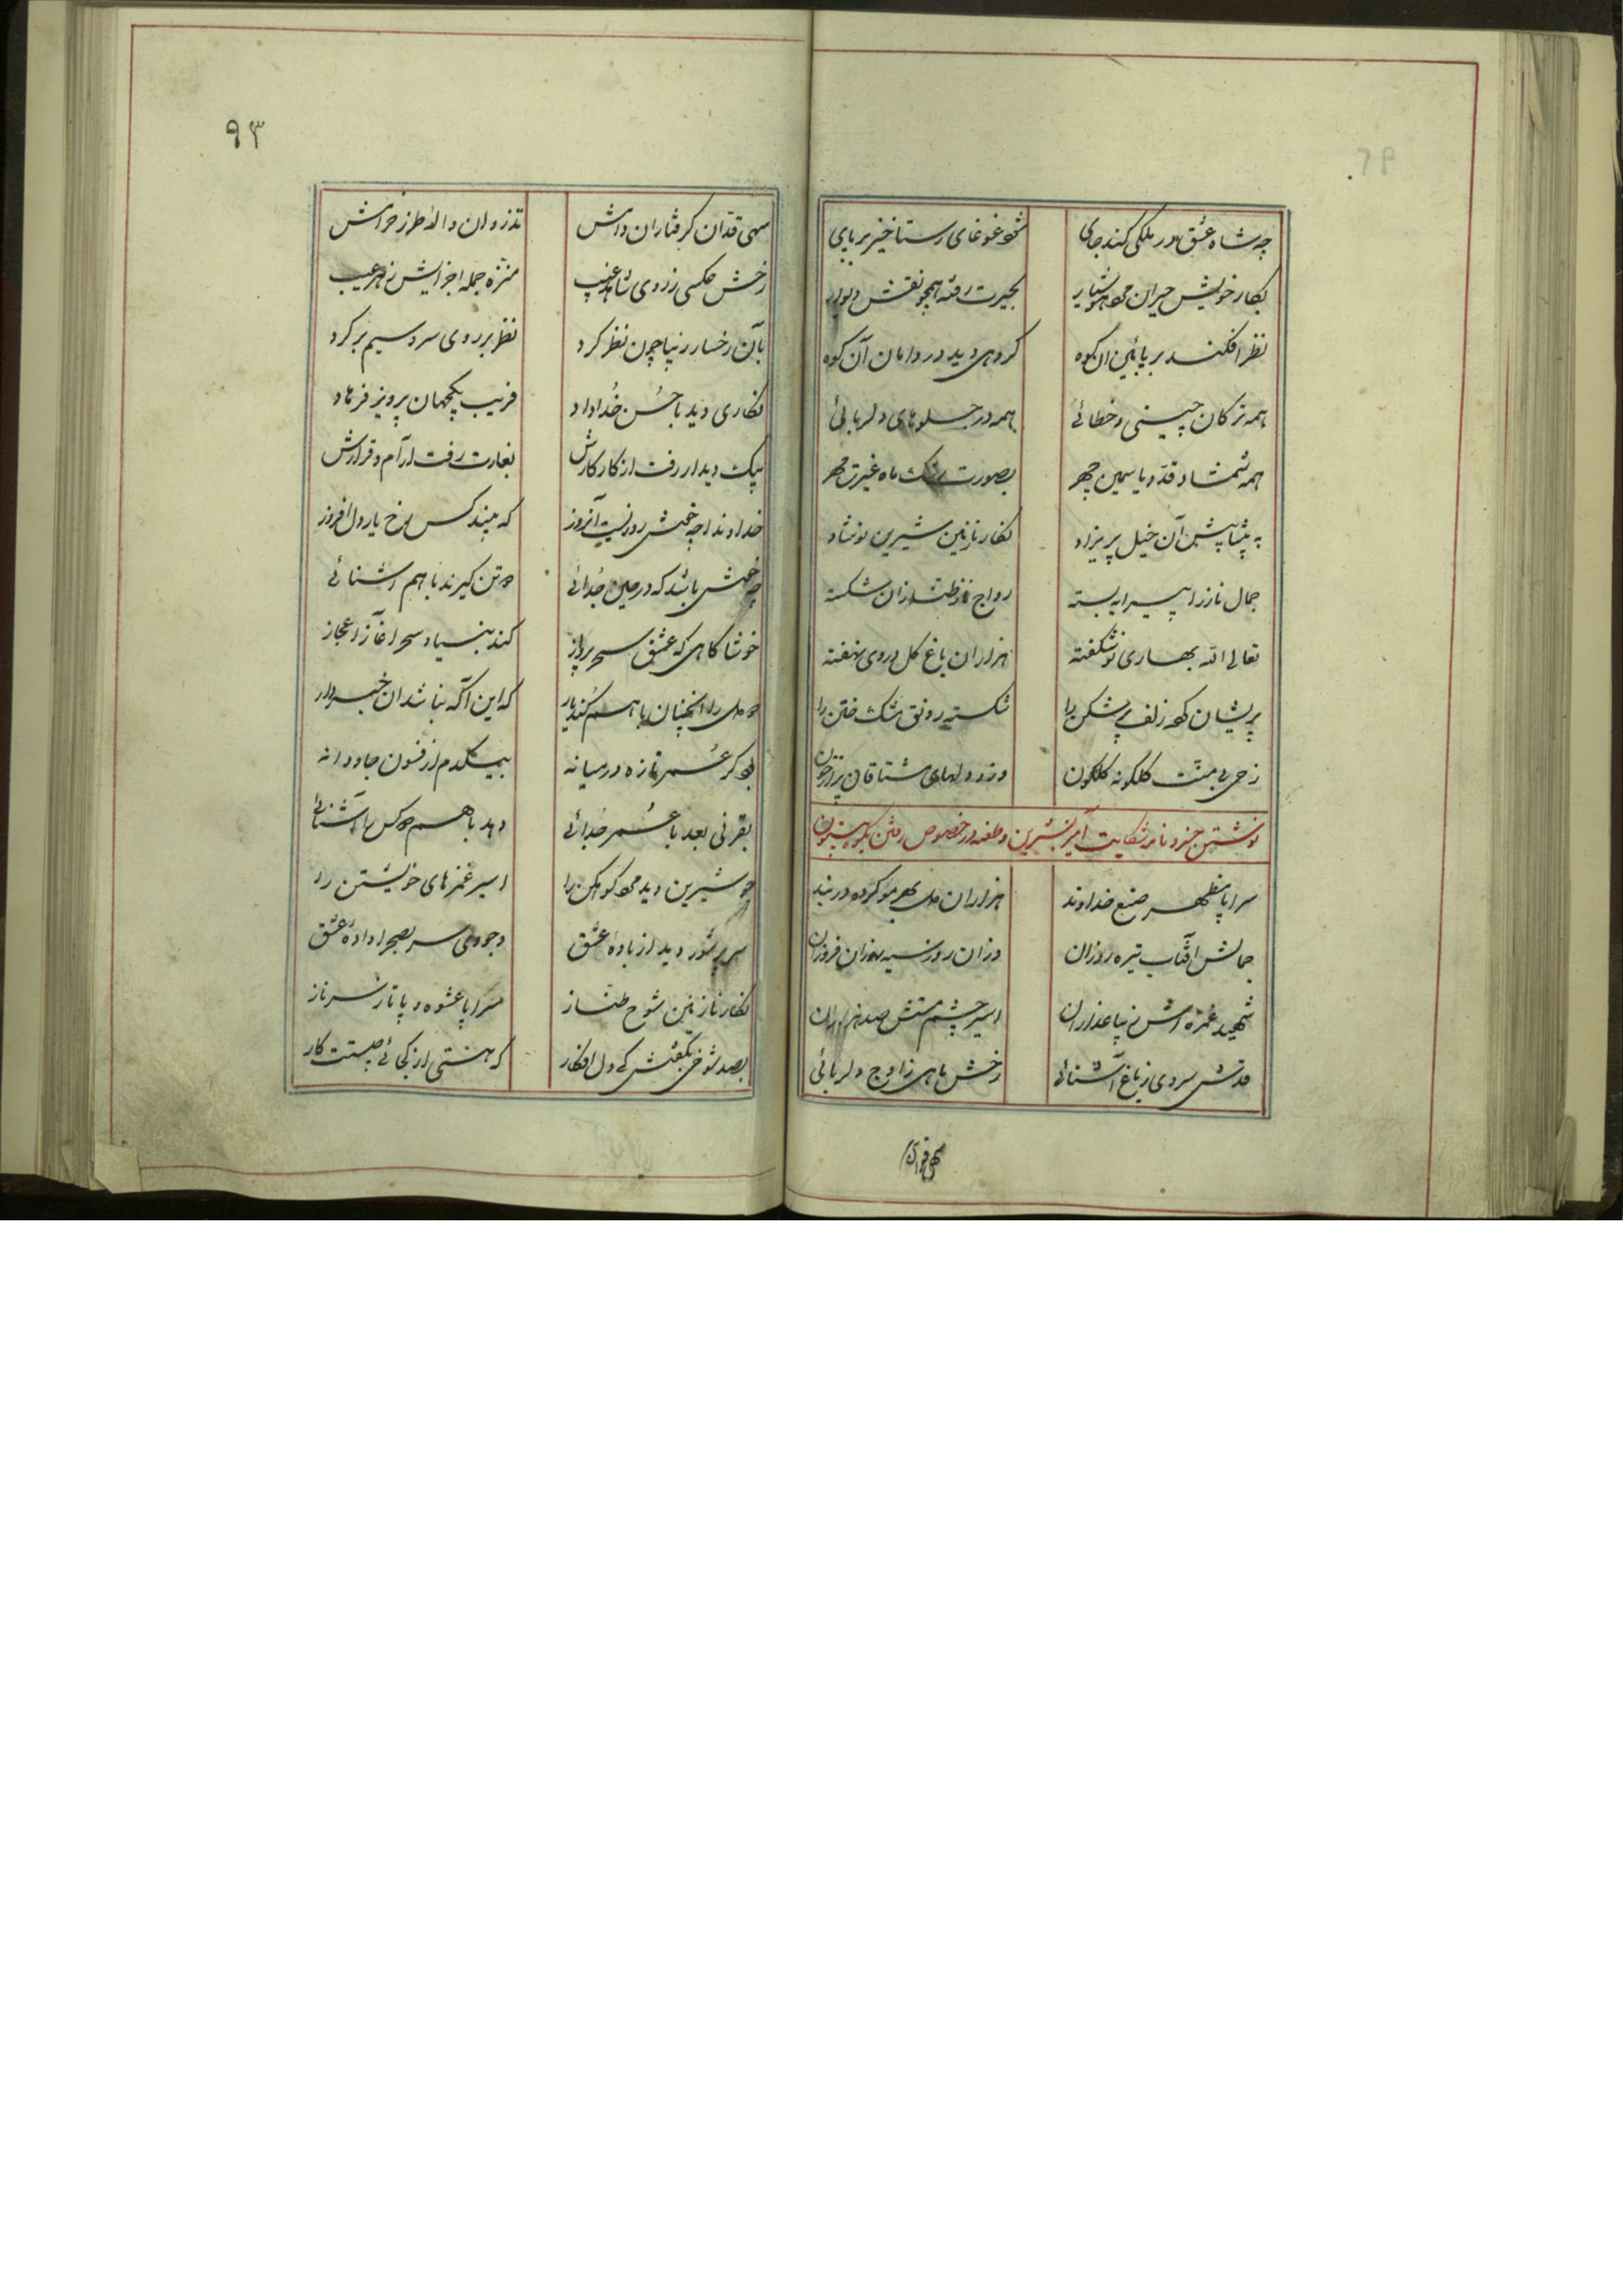 چه شاه عشق در ملکی کند جای
شود غوغای رستاخیز بر پای
بکار خویش حیران مرد هشیار
بحیرت رفته همچو نقش دیوار
نظر افکند بر پائین آن کوه
کروهی دید در دامان آن کوه
همه ترکان چینی و خطائی
همه در جلوهای دلربائی
همه شمشاد قد و یاسمین چهر
بصورت رشک ماه غیرت مهر
به پیشاپیش آن خیل پریزاد
نکار نازنین شیرین نوشاد
جمال ناز را پیرایه بسته
رواج از طنازان شکسته
تعالی الله بهاری نوشکفته
هزاران باغ کل در وی نهفته
پریشان کرد زلف پرشکن را
شکسته رونق مشک ختن را
رخی بی منت کلکونه کلکون
وزو دلهای مشتاقان پر از خون
نوشتن خسرو نامه شکایت آمیز بشیرین و طعنه در خصوص رفتن بکوه بیستون
سراپا مظهر صنع خداوند
هزاران دل بهر مو کرده در بند
جمالش آفتاب تیره روزان
وزان روز سیه روزان فروزان
شهید غمزه اش زیبا عذاران
اسیر چشم مستش صد هزاران
قدش سروی ز باغ آشنائی
رخش ماهی ز اوج دلربائی
سهی قدان
۹۳
سهی قدان کرفتاران دامش
تذروان واله طرز خرامش
رخش عکسی ز روی شاهد غیب
منزه جمله اجزایش ز هر عیب
بآن رخسار زیبا چون نظر کرد
نظر بر روی سرو سیم بر کرد
نکاری دید با حسن خداداد
فریب یکجهان پرویز فرهاد
بیک دیدار رفت از کار کارش
بغارت رفت آرام و قرارش
خداوندا چه خوش روزیست آنروز
که بیند کس رخ یار دل افروز
چه خوش باشد که در عین جدائی
دو تن کیرند با هم آشنائی
خوشا کاهی که عشق سحر پرداز
کند بنیاد سحر آغاز اعجاز
دو دل را آنچنان با هم کند یار
که این آکه نباشد آن خبردار
بود کر عمر تازه در میانه
بیکدم از فسون جاودانه
بقرنی بعد با عمر جدائی
دهد با هم دو کس را آشنائی
چو شیرین دید مرد کوهکن را
اسیر غمزهای خویشتن را
سر پر شور دید از باده عشق
وجودی سر بصحرا داده عشق
نکار نازنین شوخ طناز
سراپا عشوه و پا تا بسر ناز
بصد شوخی بکفتش کی دل افکار
که هستی از کجائی چیستت کار